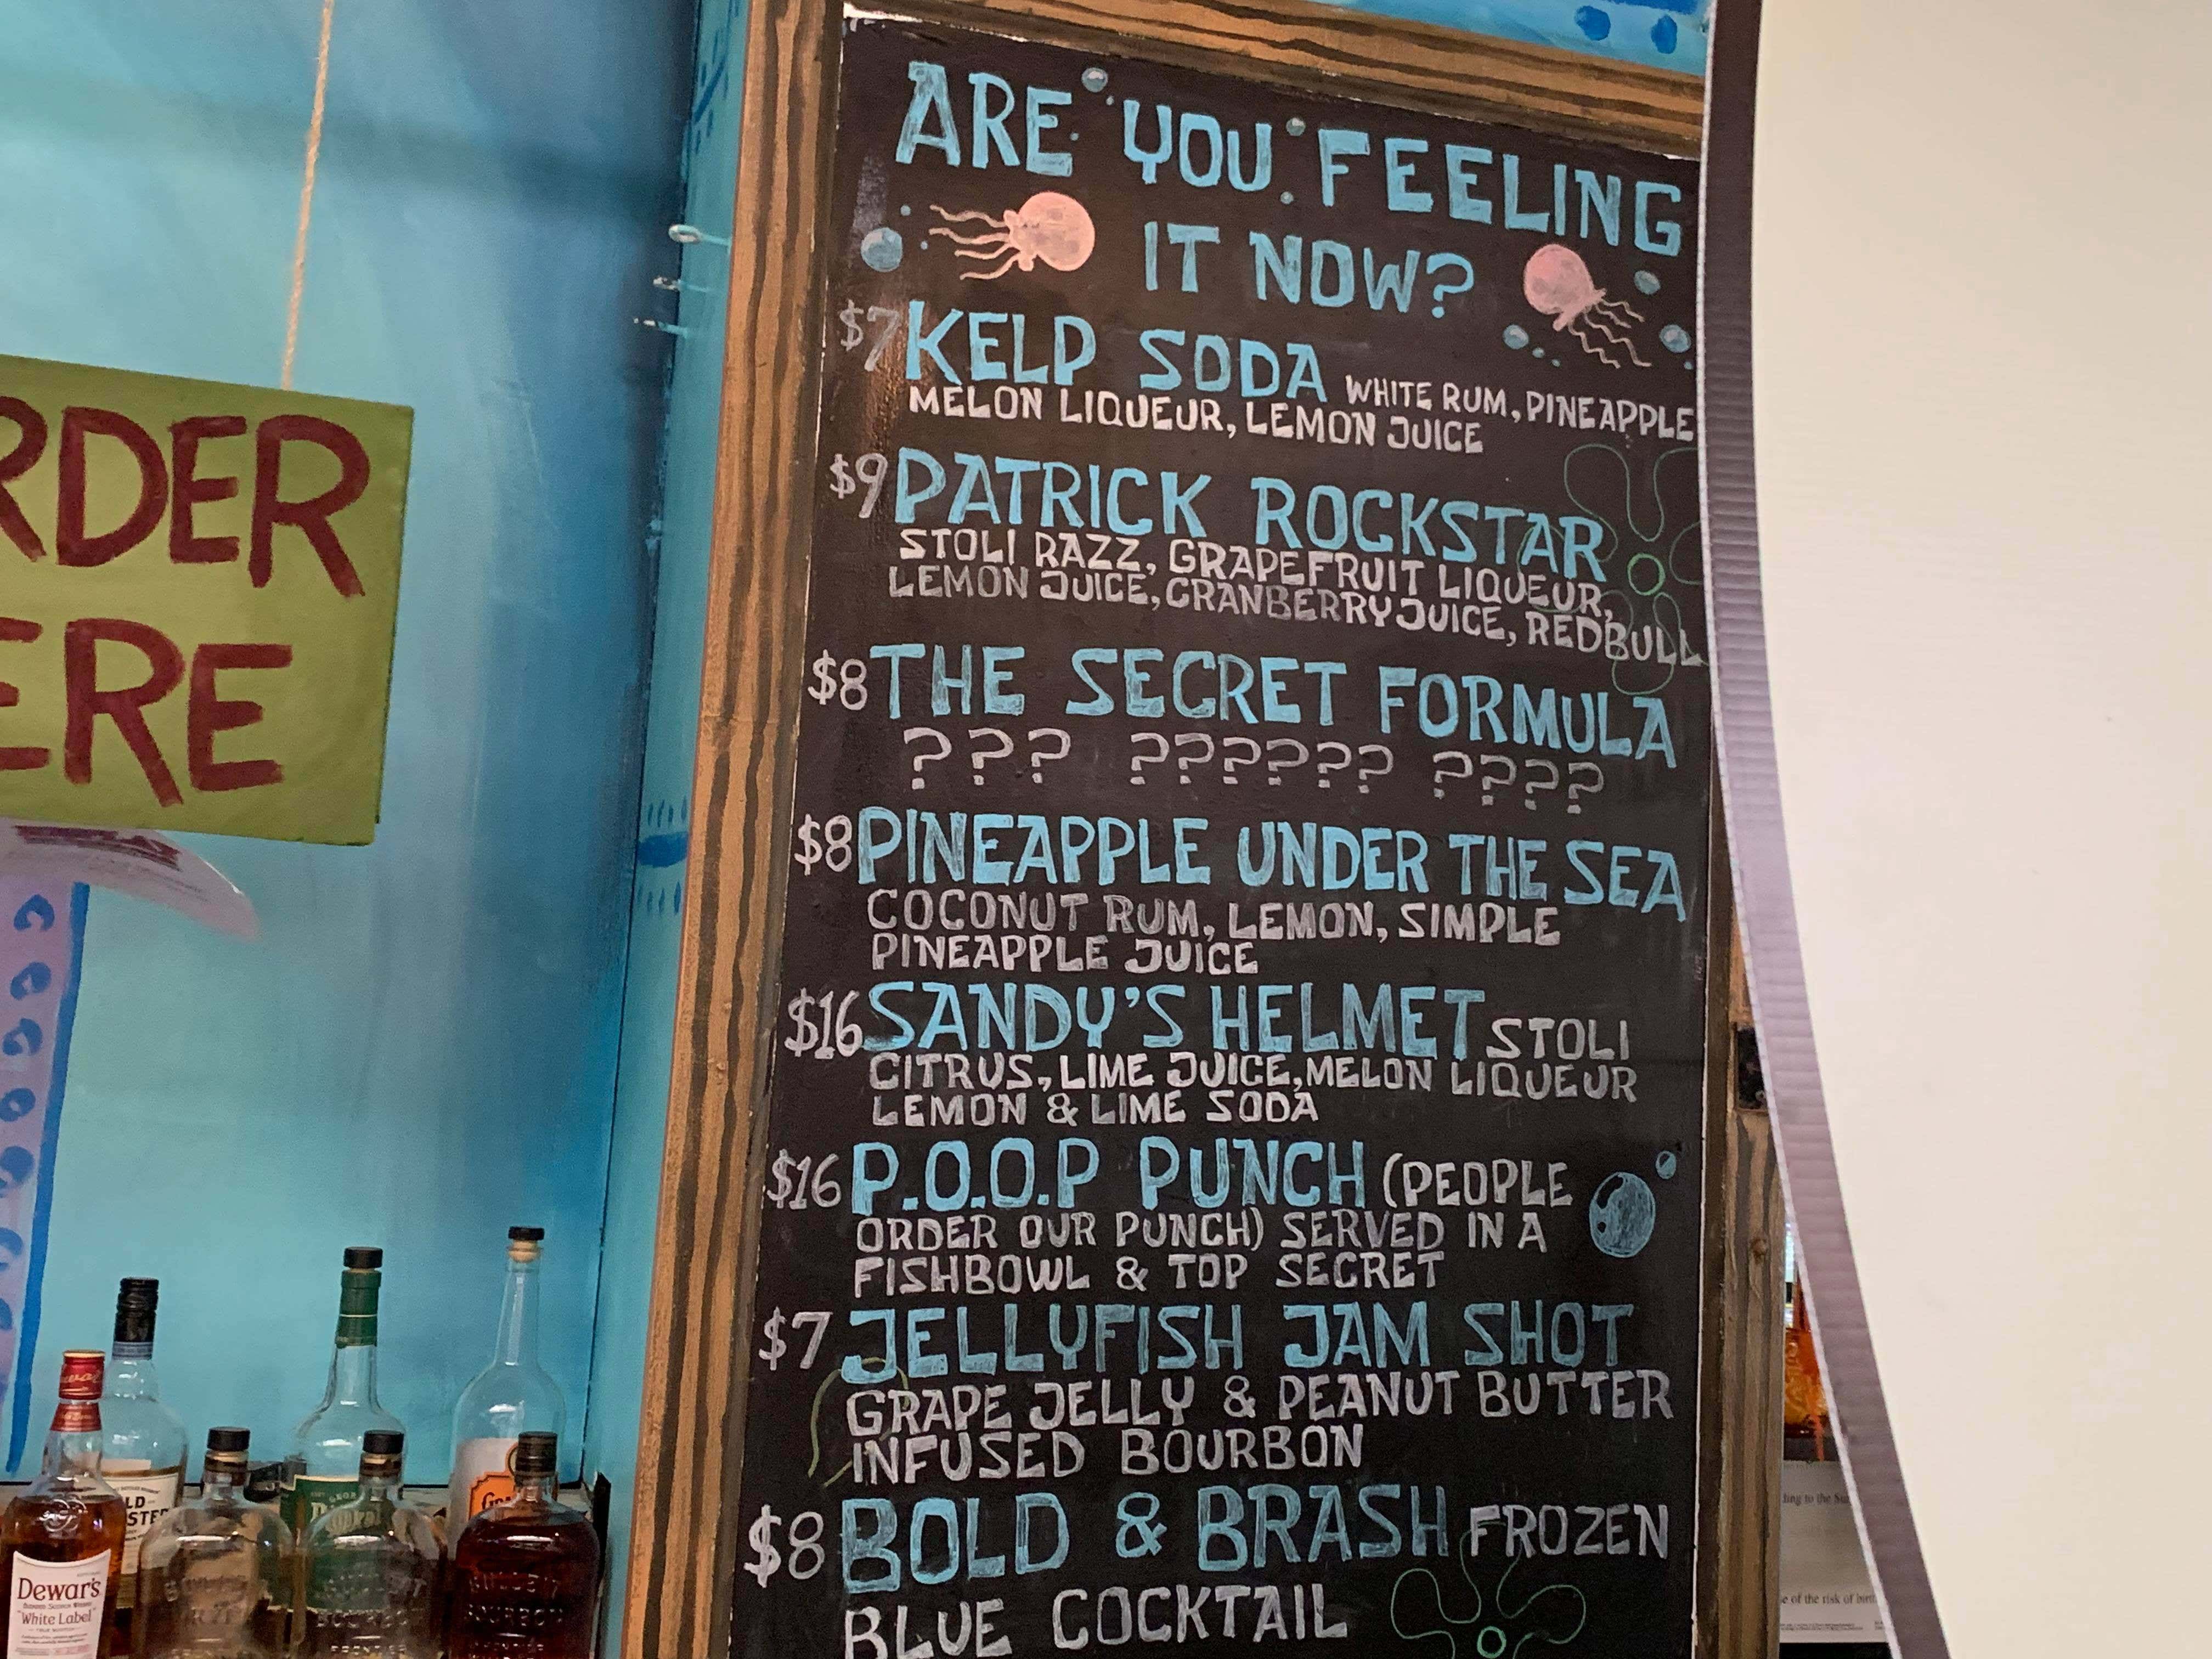 RDER
ERE
ARE YOU FEELING
IT NOW?
$7 KELP SODA WHITE RUM, PINEAPPLE
MELON LIQUEUR, LEMON JUICE
$9 PATRICK ROCKSTAR
STOLI RAZZ, GRAPEFRUIT LIQUEUR,
LEMON JUICE, CRANBERRY JUICE, REDBULL
$8 THE SECRET FORMULA
??? ?????? ????
$8 PINEAPPLE UNDER THE SEA
COCONUT RUM, LEMON, SIMPLE
PINEAPPLE JUICE
$16 SANDY'S HELMET STOLI
CITRUS, LIME JUICE, MELON LIQUEUR
LEMON & LIME SODA
$16 P.O.O.P PUNCH (PEOPLE
ORDER OUR PUNCH) SERVED IN A
FISHBOWL & TOP SECRET
$7 JELLYFISH JAM SHOT
GRAPE JELLY & PEANUT BUTTER
INFUSED BOURBON
$8 BOLD & BRASH FROZEN
BLUE COCKTAIL
Dewar's
"White Label"
LD
STER
BOURBON
ding to the Su
e of the risk of birt